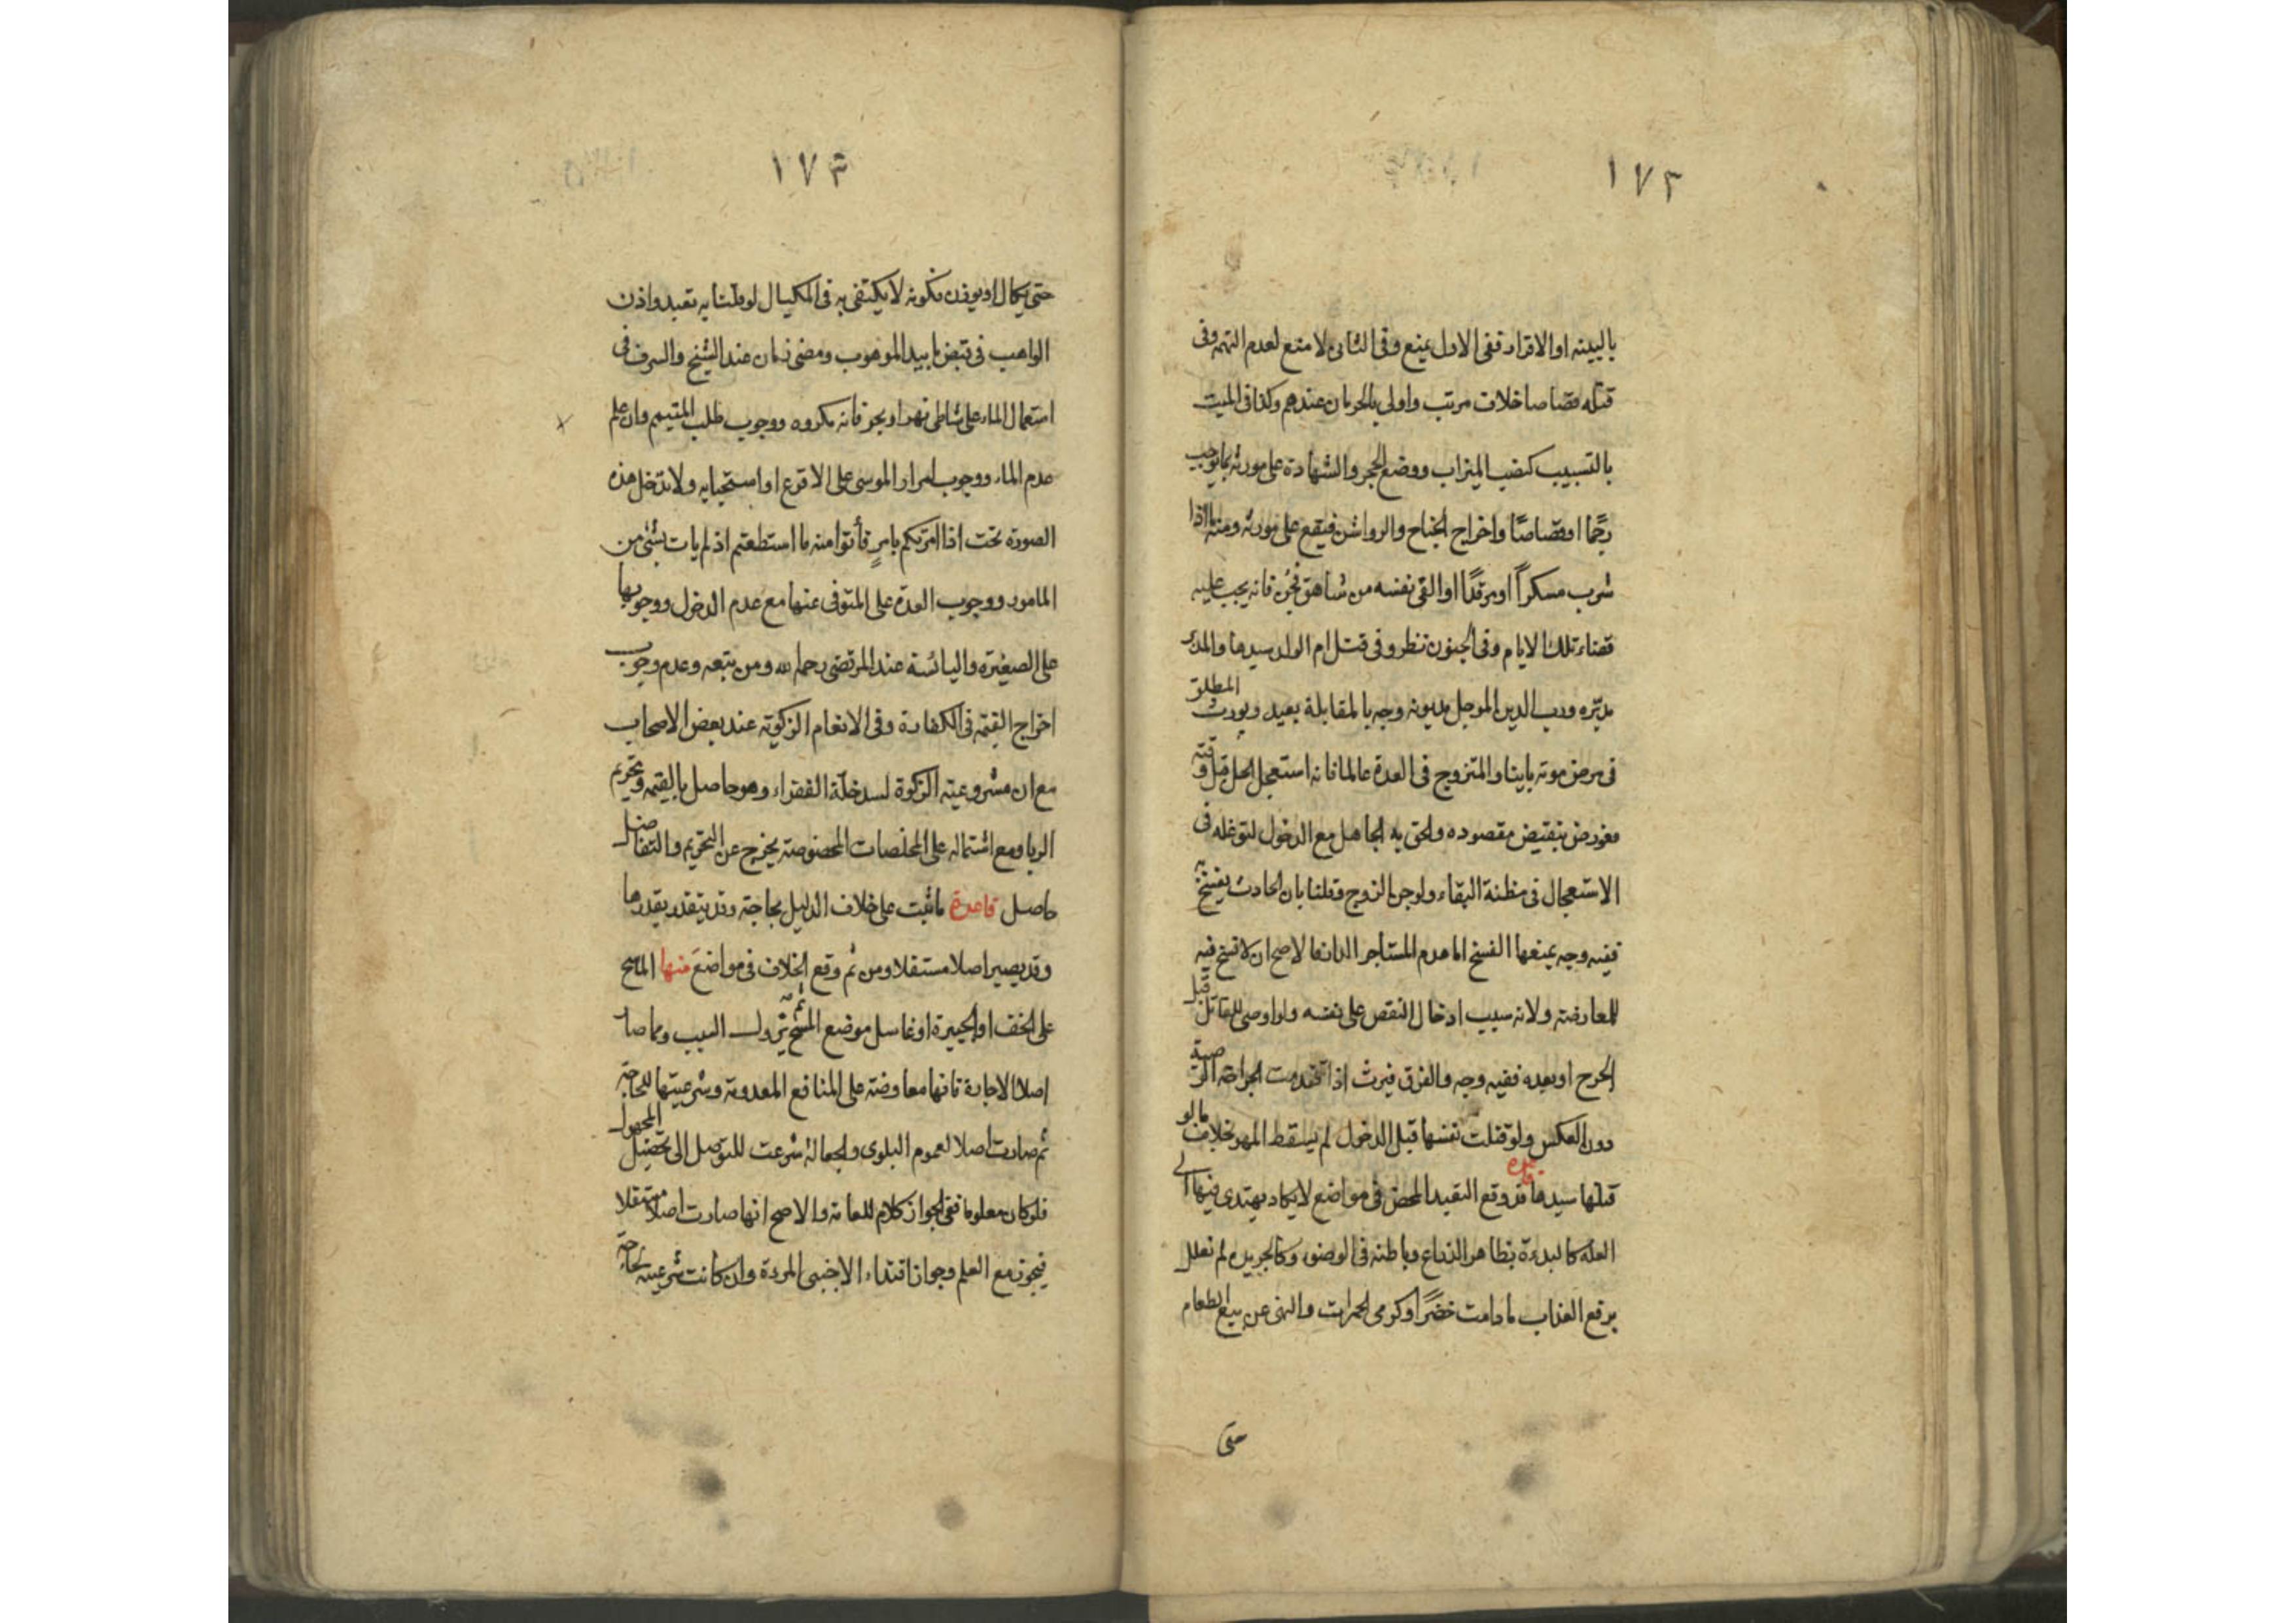 ١٧٢
بالبينه او الاقرار ففى الاول يمنع وفى الثانى لا منع لعدم التهمه وفى
قتله قصاصا خلاف مرتب واولى بالحرمان عندهم وكذا فى الميت
بالتسبيب كنصب الميزاب ووضع الحجر والشهادة على مورثه بما يوجب
رجمًا او قصاصًا واخراج الجناح والرواشن فيقع على مورثه ومنه ما اذا
شرب مسكراً او مرقدًا او القى نفسه من شاهق فجُن فانه يجب عليه
قضاء تلك الايام وفى الجنون نظر وفى قتل ام الولد سيدها والمدبر
مدبّره ورب الدين الموجل مديونه وجه بالمقابلة بعيد ويورث المطلق
فى مرض موته باينا والمتزوج فى العدة عالما فانه استعجل الحل قبل وقته
فعورض بنقيض مقصوده والحق به الجاهل مع الدخول لتوغله فى
الاستعجال فى مظنة البقاء ولو جن الزوج وقلنا بان الحادث يفسخ به
ففيه وجه بمنعها الفسخ اما هدم المستاجر الدار فالاصح ان لا فسخ فيه
للمعارضة ولانه سبب ادخال النقص على نفسه ولو اوصى للقاتل قبل
الجرح او بعده ففيه وجه والفرق فيرث اذا تقدمت الجراحة الوصية
دون العكس ولو قتلت نفسها قبل الدخول لم يسقط المهر بخلاف ما لو
قتلها سيدها قاعدة قد وقع التعبد المحض فى مواضع لا يكاد يهتدى فيها الى
العلة كالبدءة بظاهر الذراع وباطنه فى الوضوء وكالجريدة لم تعلل
برفع العذاب ما دامت خضراً وكرمى الجمرات والنهى عن بيع الطعام
حتى
١٧٣
حتى يكال او يوزن لكونه لا يكتفى به فى المكيال لو قلنا به تعبد واذن
الواهب فى قبض ما بيد الموهوب ومضى زمان عند الشيخ والسرف فى
استعمال الماء على شاطى نهر او بحر فانه مكروه ووجوب طلب المتيمم وان علم
عدم الماء ووجوب امرار الموسى على الاقرع او استحبابه ولا تدخل هذه
الصورة تحت اذا امرتكم بامرٍ فأتوا منه ما استطعتم اذ لم يات بشئ من
المامور ووجوب العدة على المتوفى عنها مع عدم الدخول ووجوبها
على الصغيرة واليائسة عند المرتضى رحمه الله ومن تبعه وعدم وجوب
اخراج القيمة فى الكفارة وفى الانعام الزكوية عند بعض الاصحاب
مع ان مشروعية الزكوة لسد خلة الفقراء وهو حاصل بالقيمة وتحريم
الربا ومع اشتماله على المخلصات المخصوصة يخرج عن التحريم والتفاضل
حاصل قاعدة ما ثبت على خلاف الدليل لحاجة وقد يتقدر بقدرها
وقد يصير اصلا مستقلا ومن ثم وقع الخلاف فى مواضع منها الماسح
على الخف او الجبيرة او غاسل موضع المسح ثم يزول السبب ومما صار
اصلا الاجارة فانها معاوضة على المنافع المعدومة وشرعيتها للحاجة
ثم صارت اصلا لعموم البلوى والجعالة شرعت للتوصل الى تحصيل المجهول
فلو كان معلوما ففى الجواز كلام للعامة والاصح انها صارت اصلا مستقلا
فيجوز مع العلم وجواز اقتداء الاجنبى المردة وان كانت شرعيته لحاجة